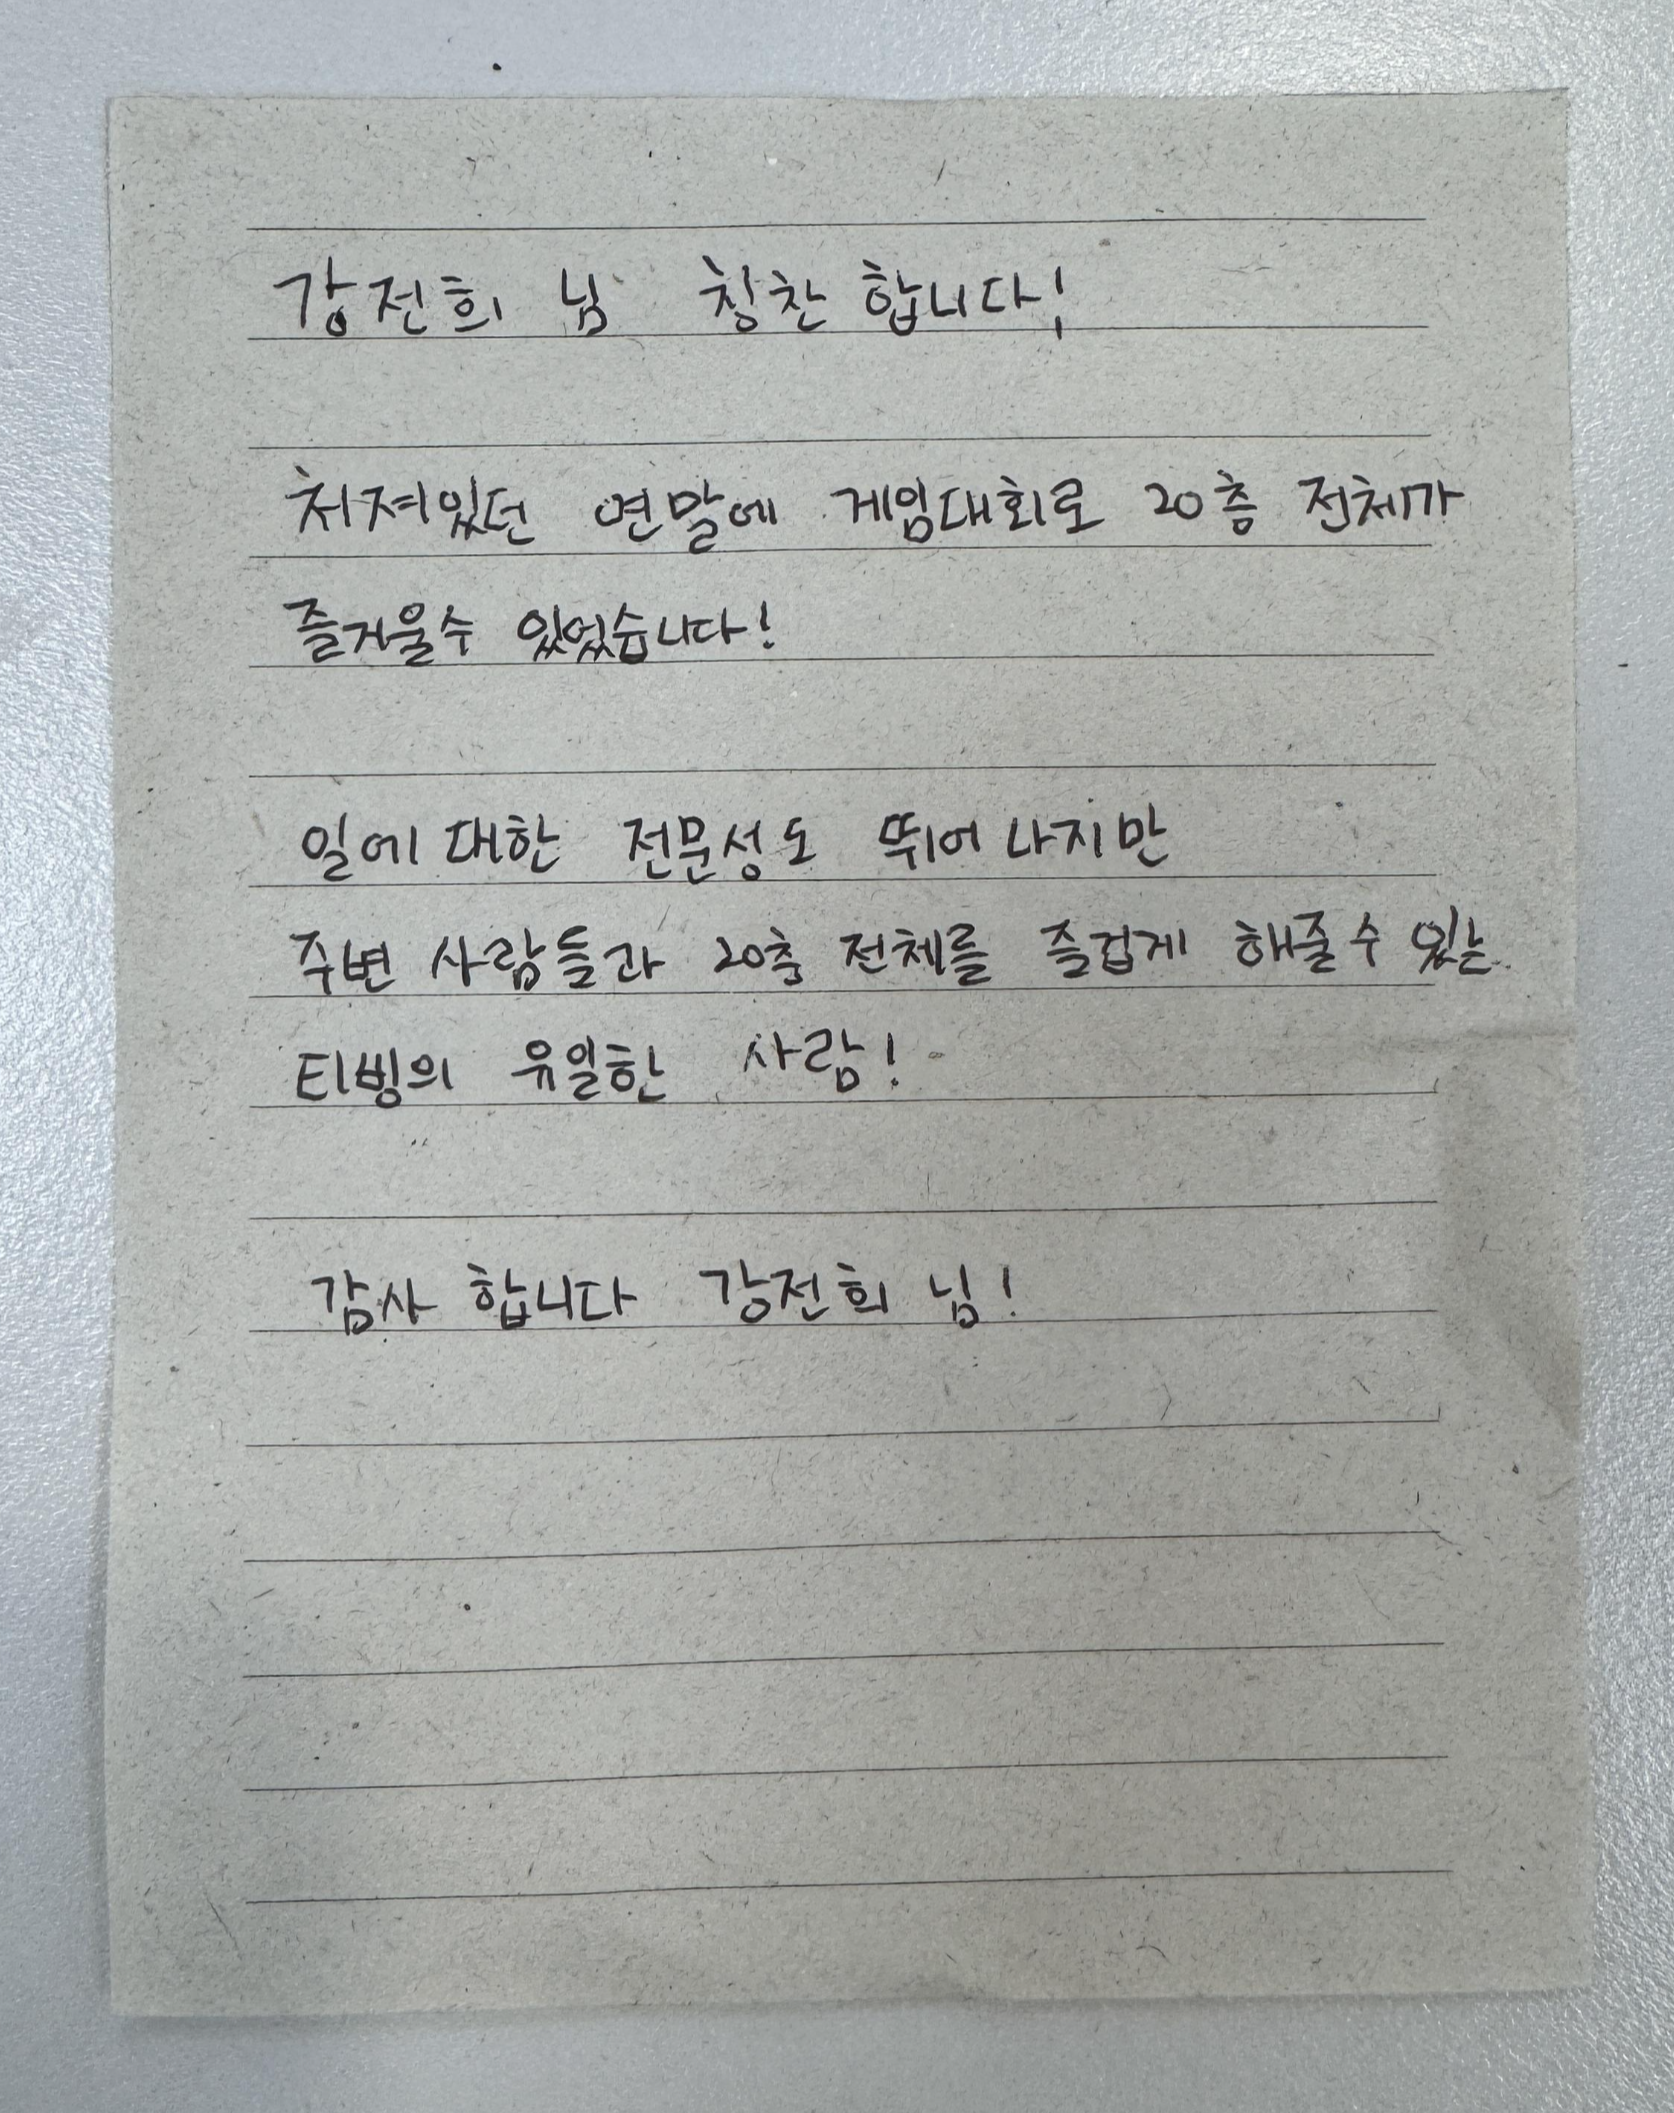 강전희 님 칭찬 합니다!
처져있던 연말에 게임대회로 20층 전체가
즐거울수 있었습니다!
일에 대한 전문성도 뛰어나지만
주변 사람들과 20층 전체를 즐겁게 해줄수 있는
티빙의 유일한 사람!
감사 합니다 강전희 님!